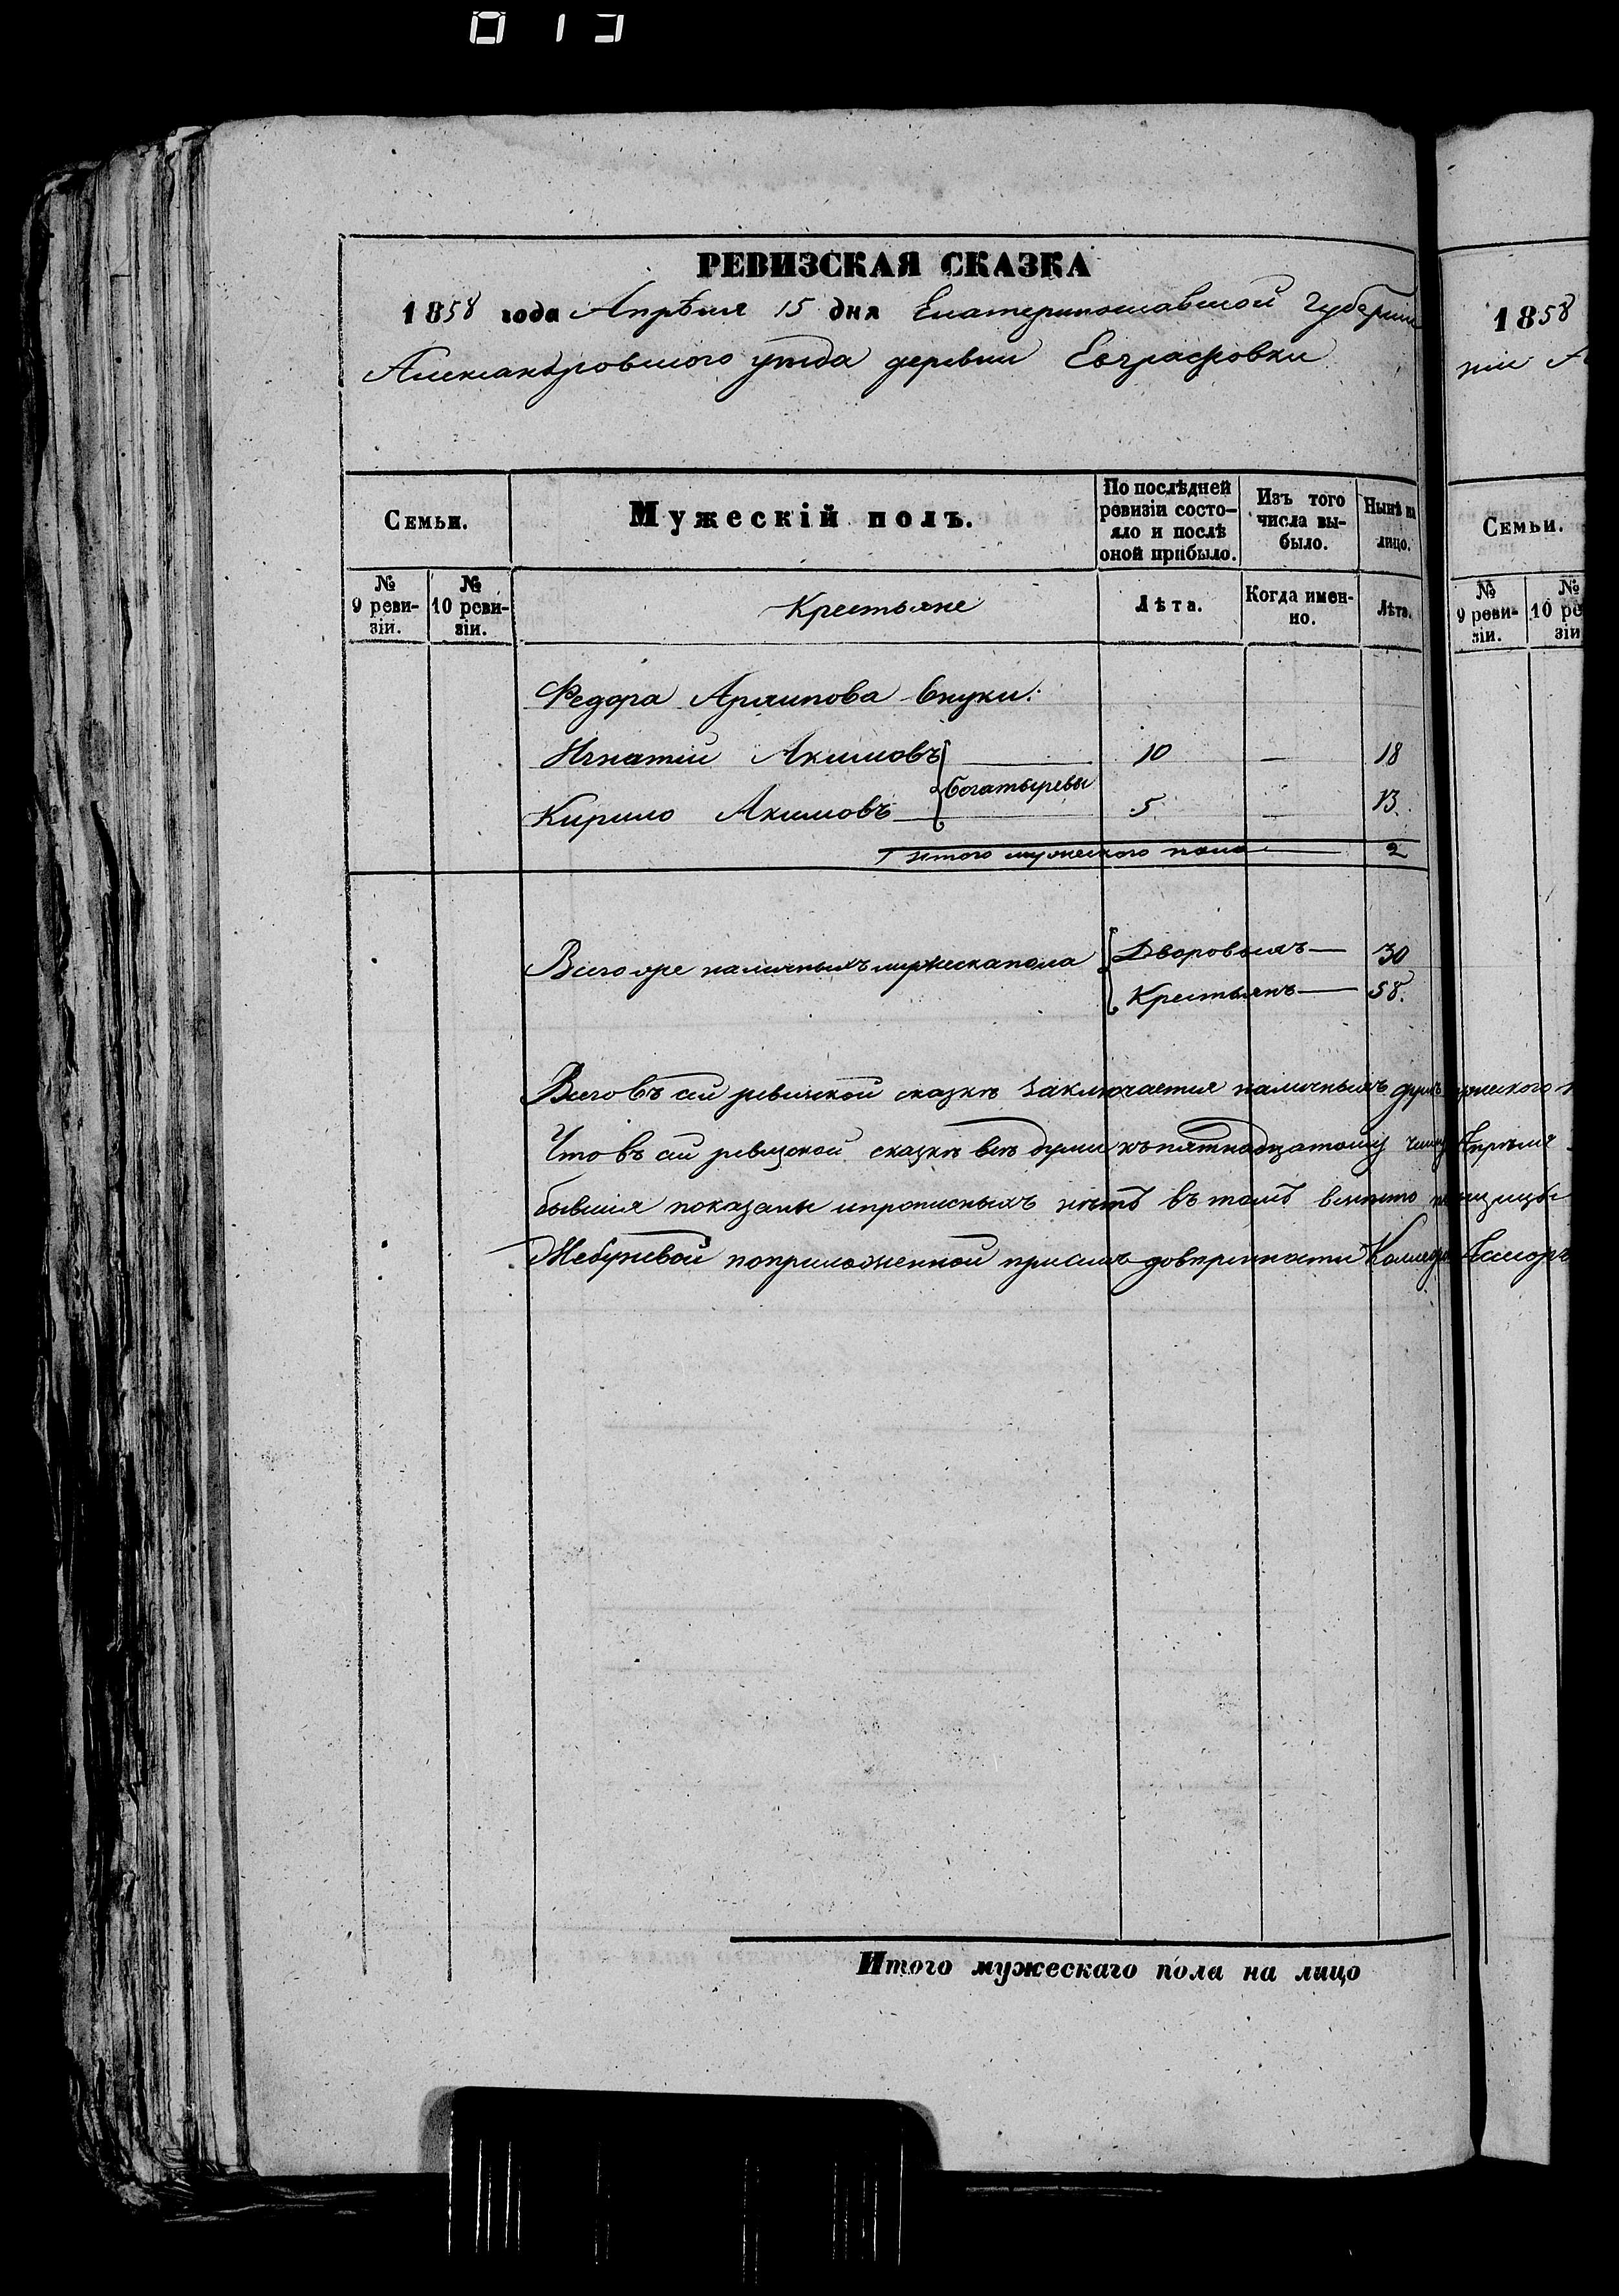 013
РЕВИЗСКАЯ СКАЗКА
1858 года Апрѣля 15 дня Екатеринославской Губерніи
Александровскаго уѣзда деревни Евграфовки
Семьи.
Мужескій полъ.
По послѣдней ревизіи состо-
яло и послѣ оной прибыло.
Изъ того числа вы-
было.
Нынѣ на лицо.
№ 9 реви-
зіи.
№ 10 реви-
зіи.
Крестьяне
Лѣта.
Когда имен-
но.
Лѣта.
Федора Архипова внуки:
Игнатій Акимовъ 10 — 18
Богатыревы
Кирило Акимовъ 5 — 13.
Итого мужескаго пола 2
Всего же наличныхъ мужеска пола Дворовыхъ — 30
Крестьянъ — 58.
Всего въ сей ревизской сказкѣ заключается наличныхъ душъ мужескаго
Что въ сей ревизской сказкѣ всѣ души къ пятнадцатому числу Апрѣля
бывшія показаны и прописныхъ нѣтъ въ томъ вмѣсто
по приложенной при семъ довѣренности
1858
Семьи.
№ 9 реви-
зіи.
№ 10 ре
зіи
Итого мужескаго пола на лицо